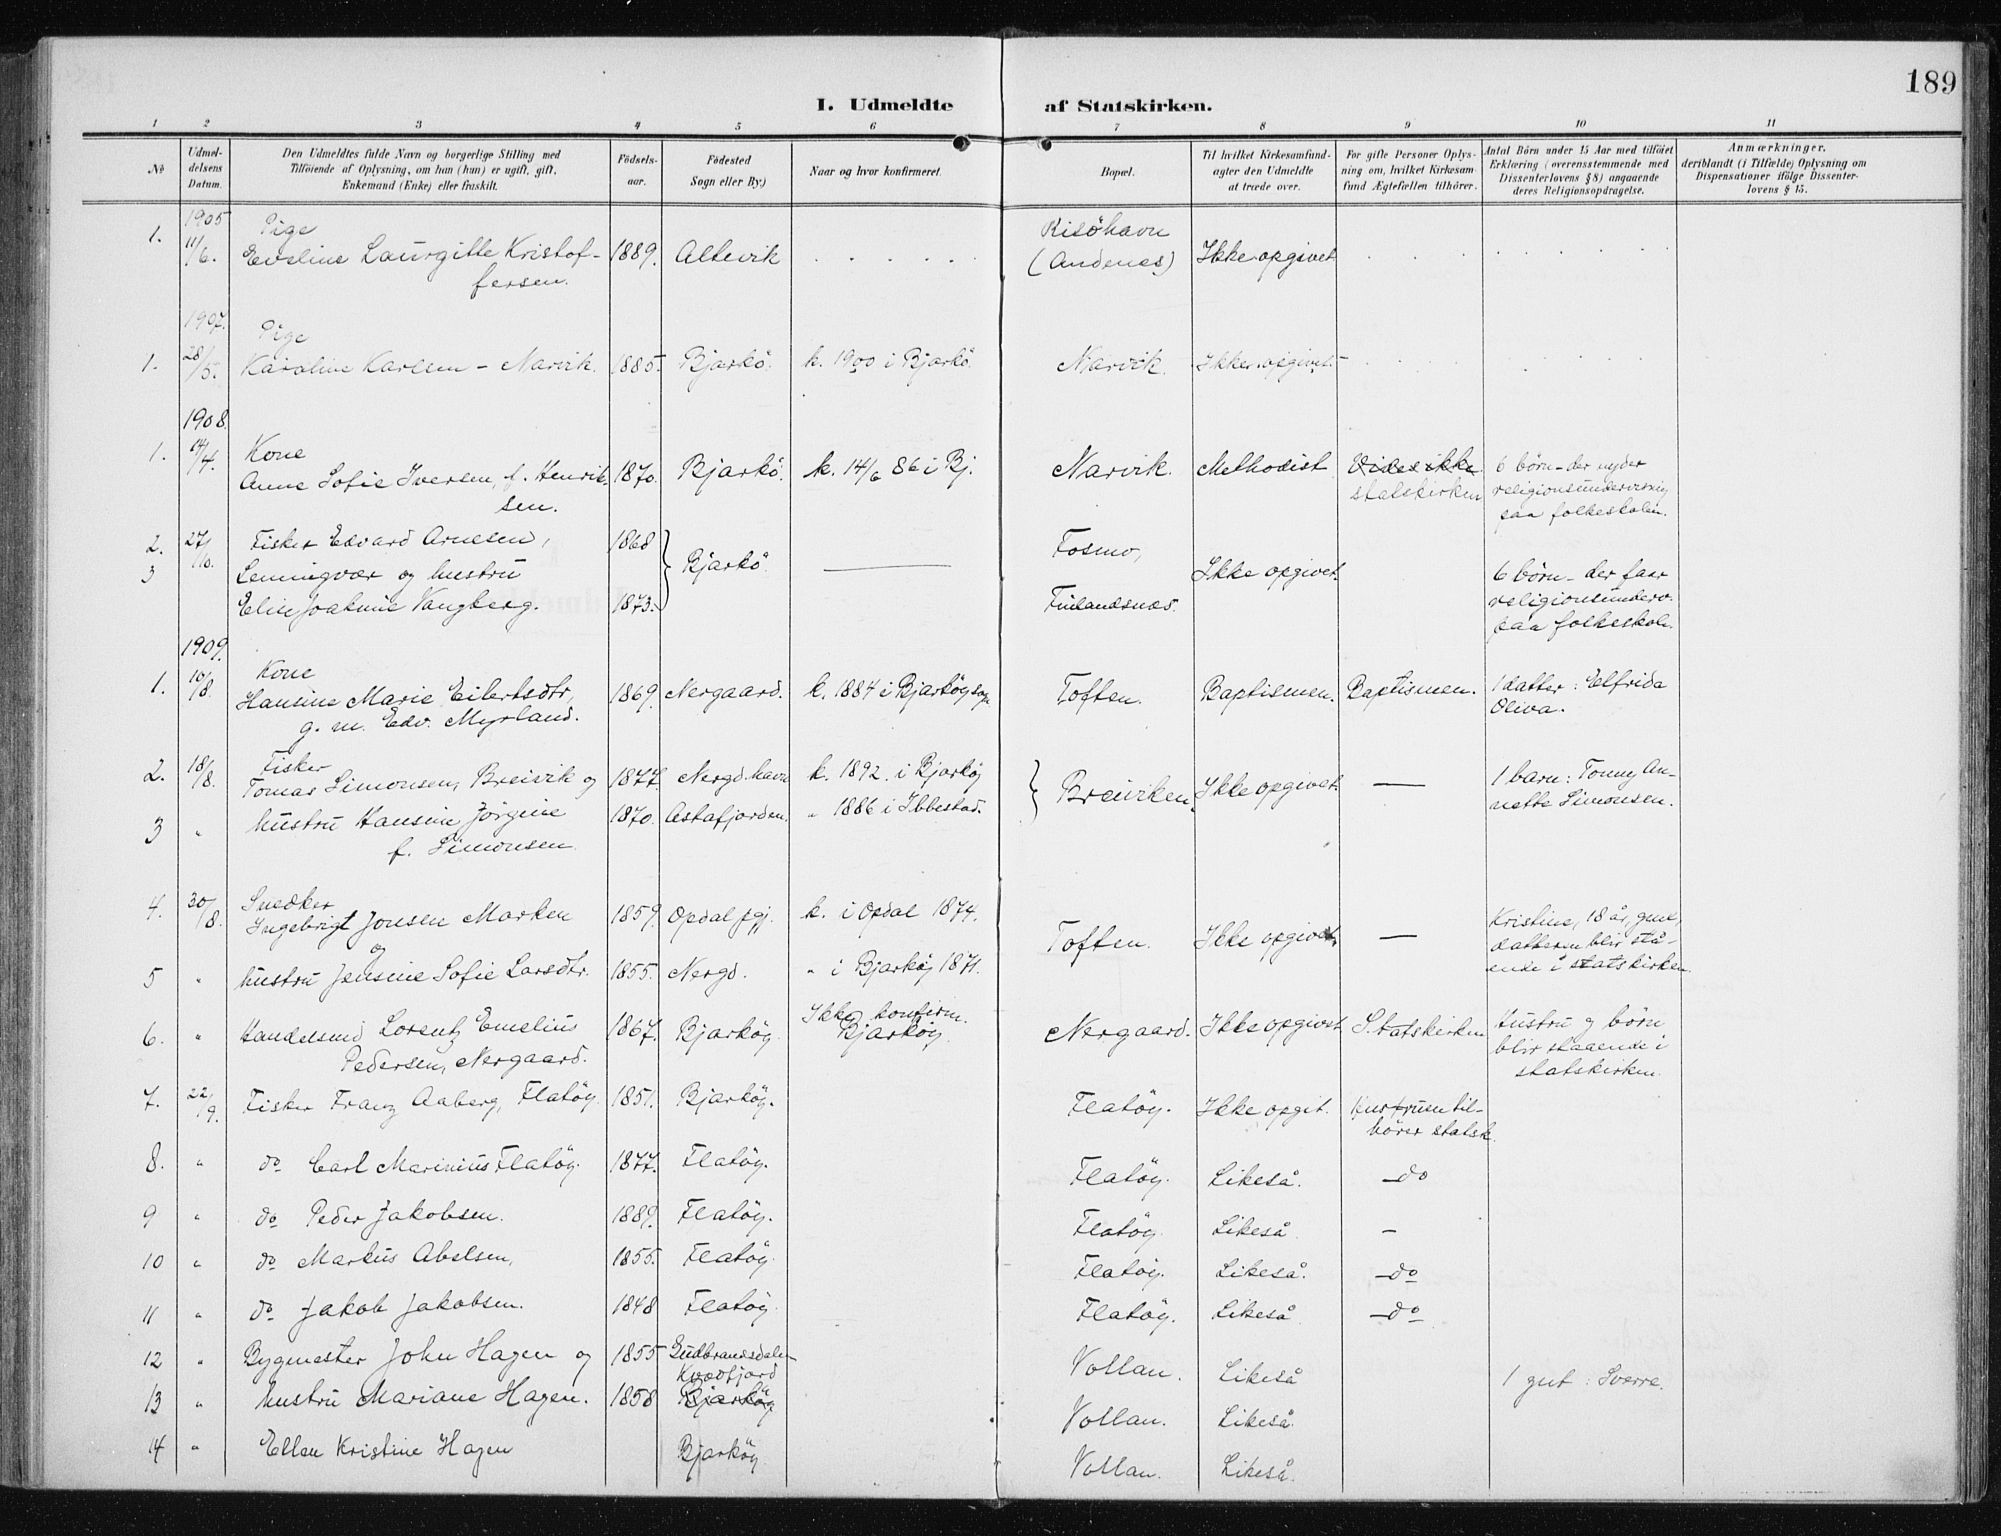 189
I. Udmeldte af Statskirken.
1 2 3 4 5 6 7 8 9 10 11
No
Udmel-
delsens
Datum.
Den Udmeldtes fulde Navn og borgerlige Stilling med
Tilföiende af Oplysning, om han (hun) er ugift, gift,
Enkemand (Enke) eller fraskilt.
Födsels-
aar.
Födested
Sogn eller By.)
Naar og hvor konfirmeret.
Bopæl.
Til hvilket Kirkesamfund-
agter den Udmeldte
at træde over.
For gifte Personer Oplys-
ning om, hvilket Kirkesam-
fund Ægtefællen tilhörer.
Antal Börn under 15 Aar med tilföiet
Erklæring (overensstemmende med
Dissenterlovens § 8) angaaende
deres Religionsopdragelse.
Anmærkninger,
deriblandt (i Tilfælde) Oplysning om
Dispensationer ifölge Dissenter-
lovens § 15.
1905
Pige
Risöhavn
1. 11/6. Eveline Laurgitte Kristof- 1889. Altevik (Andenes) Ikke opgivet
fersen.
1907.
Pige
1. 28/5. Karoline Karlsen - Narvik. 1885. Bjarkö. k. 1900 i Bjarkö. Narvik. Ikke opgivet.
1908.
1. 14/4. Kone
Anne Sofie Iversen, f. Henrik- 1870. Bjarkö. k. 14/6 86 i Bj. Narvik. Methodist Vides ikke 6 börn - der nyder
sen. statskirken religionsundervisning
paa folkeskolen.
2. 27/10. Fisker Edvard Arnesen, 1868 Fosmo,
3 Lemmingvær og hustru Bjarkö. Ikke opgivet. 6 börn - der faar
Elise Joakime Vangberg. 1873. Finlandsnæs. religionsunderv.
paa folkeskole.
1909.
1. 10/8. Kone
Hansine Marie Eilertsdtr, 1869. Nergaard. k. 1884 i Bjarköy sogn Toften. Baptismen. Baptismen. 1 datter: Elfrida
g. m. Edv. Myrland. Oliva.
2. 18/8. Fisker
Tomas Simonsen, Breivik og 1877. Nergd.havn k. 1892. i Bjarköy Breiviken. Ikke opgivet. — 1 barn: Tonny An-
3 " hustru Hansine Jörgine 1870. Astafjorden. " 1886 i Ibbestad. nette Simonsen.
f. Simonsen.
4. 30/8. Snedker
Ingebrigt Jonsen Marken 1859. Opdal pgj. k. i Opdal 1874. Kristine, 18 år, gml,
og Toften. Ikke opgivet. — datteren blir stå-
5 " hustru Jensine Sofie Larsdtr. 1855. Nergd. " i Bjarköy 1871. ende i statskirken.
6. " Handelsmd Lorentz Emelius 1867. Bjarköy. Ikke konfirm. Bjarköy. Nergaard. Ikke opgivet Statskirken Hustru og börn
Pedersen, Nergaard. blir staaende i
statskirken.
7. 22/9. Fisker Franz Aaberg, Flatöy. 1851. Bjarköy. Flatöy. Ikke opgit. Hustruen til-
hörer statsk.
8. " do Carl Marinius Flatöy. 1877. Flatöy. Flatöy. Likeså. - do
9 " do Peder Jakobsen. 1889. Flatöy. Flatöy. Likeså -
10 " do Markus Abelsen, 1855. Flatöy. Flatöy. Likeså. - do
11 " do Jakob Jakobsen. 1848 Flatöy. Flatöy. Likeså - do
12 " Bygmester John Hagen og 1855 Gudbrandsdalen Vollan. Likeså 1 gut: Sverre.
Kvædfjord
13 " hustru Mariane Hagen. 1858 Bjarköy Vollan. Likeså.
14 " Ellen Kristine Hagen Bjarköy Vollan. Likeså.